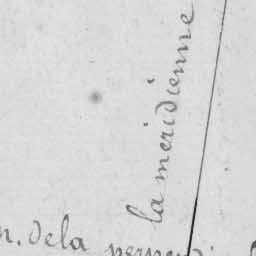 la meridienne
n. dela perpendi